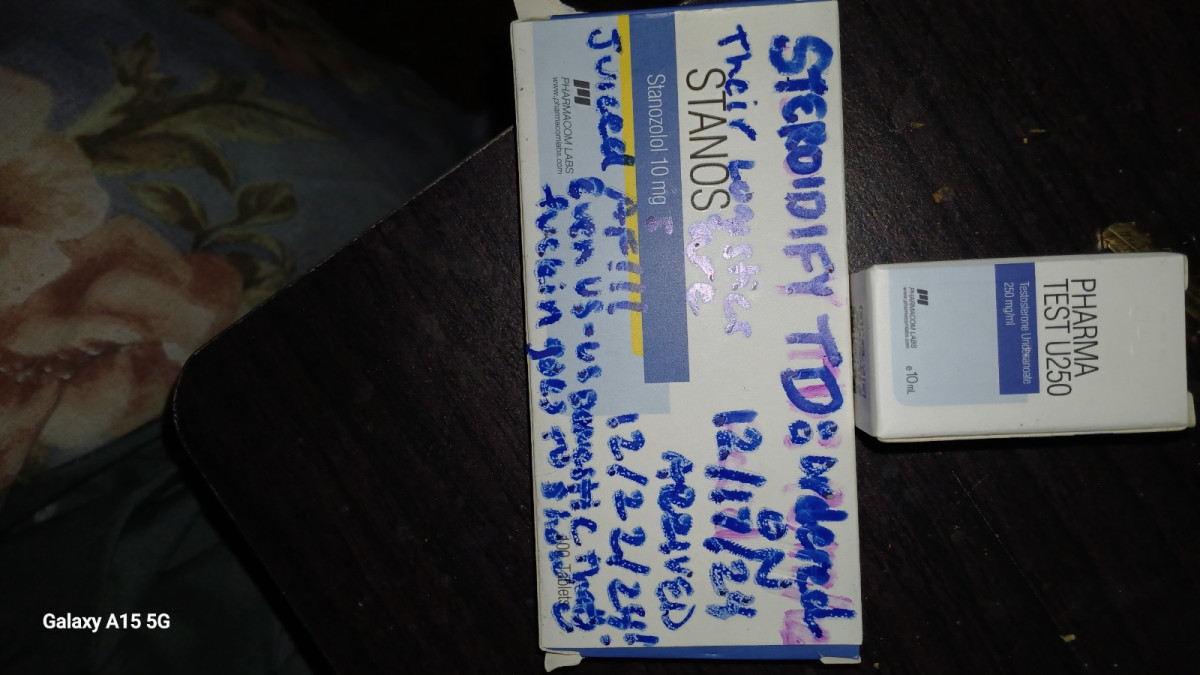 STEROIDIFY TD: ordered
Their
ON
12/17/24
STANOS
ARRIVED
Stanozolol 10 mg
12/22/24!!
Juiced
Even us-us domestic they
fuckin goes to show
PHARMACOM LABS
www.pharmacomlabs.com
100 Tablets
PHARMA
TEST U250
Testosterone Undecanoate
250 mg/ml
PHARMACOM LABS
www.pharmacomlabs.com
e 10 mL
Galaxy A15 5G